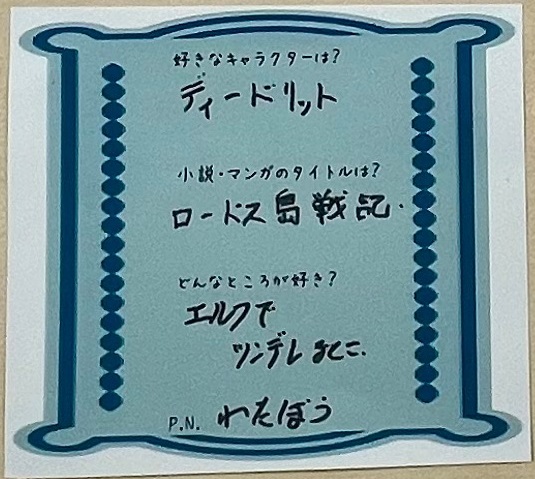 好きなキャラクターは?
ディードリット
小説・マンガのタイトルは?
ロードス島戦記.
どんなところが好き?
エルフで
ツンデレなとこ.
P.N. わたぼう